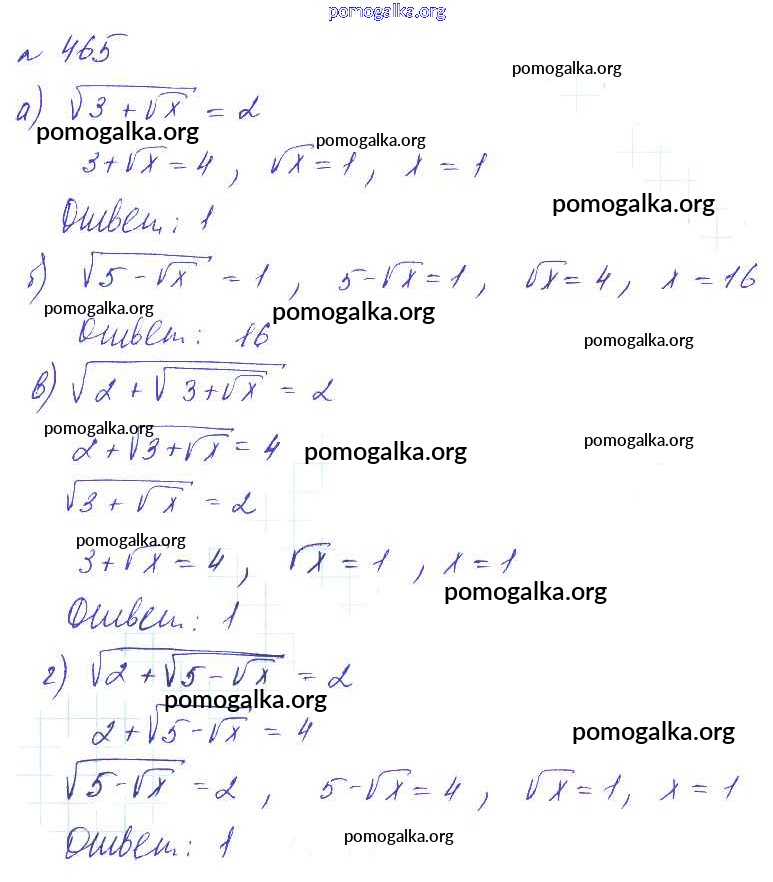 pomogalka.org
№ 465
pomogalka.org
а) √(3 + √x) = 2
pomogalka.org
pomogalka.org
3 + √x = 4, √x = 1, x = 1
pomogalka.org
Ответ: 1
б) √(5 - √x) = 1, 5 - √x = 1, √x = 4, x = 16
pomogalka.org
pomogalka.org
Ответ: 16
pomogalka.org
в) √(2 + √(3 + √x)) = 2
pomogalka.org
pomogalka.org
2 + √(3 + √x) = 4
pomogalka.org
√(3 + √x) = 2
pomogalka.org
3 + √x = 4, √x = 1, x = 1
pomogalka.org
Ответ: 1
г) √(2 + √(5 - √x)) = 2
pomogalka.org
2 + √(5 - √x) = 4
pomogalka.org
√(5 - √x) = 2, 5 - √x = 4, √x = 1, x = 1
Ответ: 1
pomogalka.org